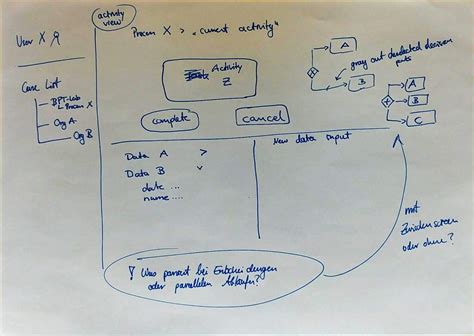 activity
view
User X
Process X > "current activity"
Case List
BPT-Lab
Process X
Org A
Org B
Activity
Z
complete
cancel
A
B
gray out deselected decision
paths
A
B
C
New data input
Data A >
Data B
date ...
name ...
mit
Zwischenscreen
oder ohne?
! Was passiert bei Entscheidungen
oder parallelen Abläufen?